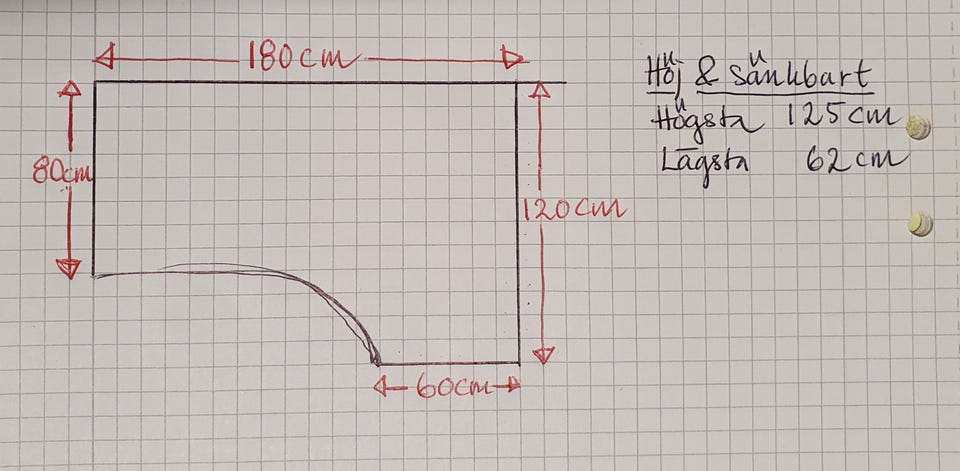 180cm
Höj & Sänkbart
Högsta 125cm
Lägsta 62cm
80cm
120cm
60cm